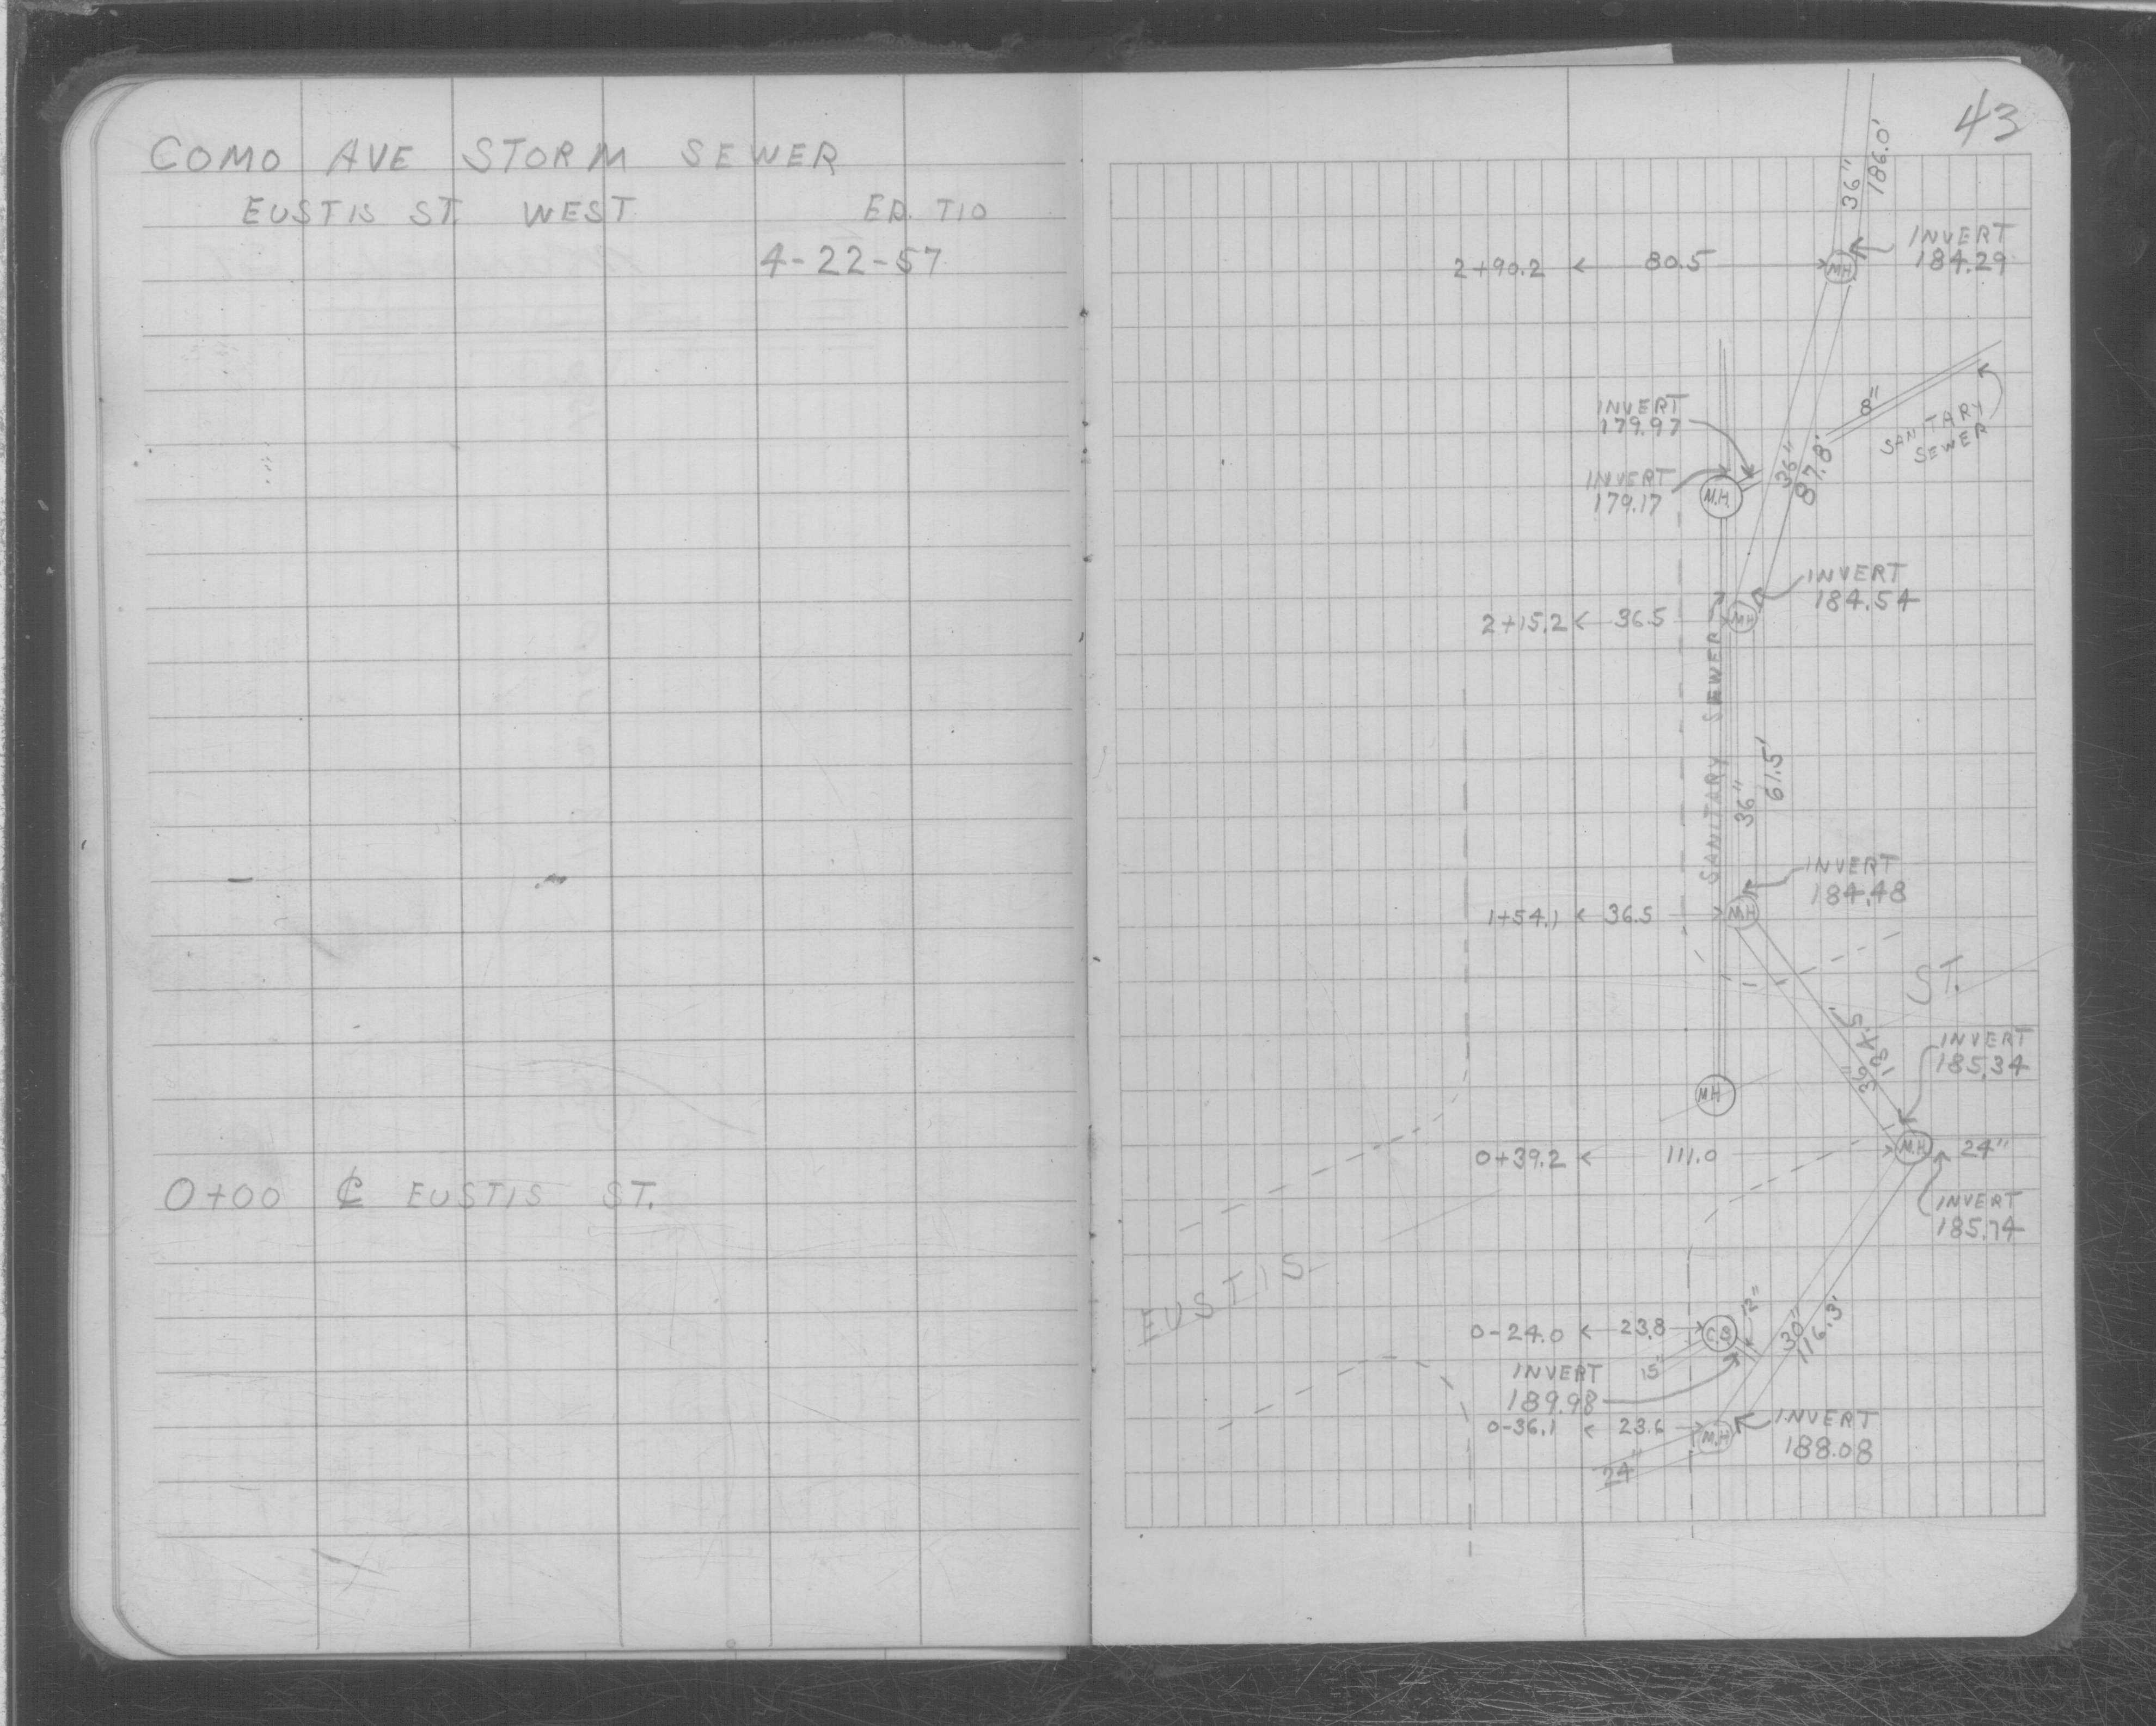 COMO AVE STORM SEWER
EUSTIS ST. WEST ED. TIO
4-22-57
0+00 ℄ EUSTIS ST.
43
36"
186.0'
INVERT
184.29
2+90.2 80.5 MH
8"
SANITARY
SEWER
INVERT
179.97
36"
87.8'
INVERT
179.17
M.H.
INVERT
184.54
2+15.2 36.5 MH
SANITARY SEWER
36"
61.5'
INVERT
184.48
1+54.1 36.5 MH
ST.
36"
INVERT
185.34
MH
0+39.2 111.0 M.H 24"
INVERT
185.74
EUSTIS
12"
0-24.0 23.8 C.B
30"
116.3'
INVERT
189.98
15"
0-36.1 23.6 M.H
INVERT
188.08
24"